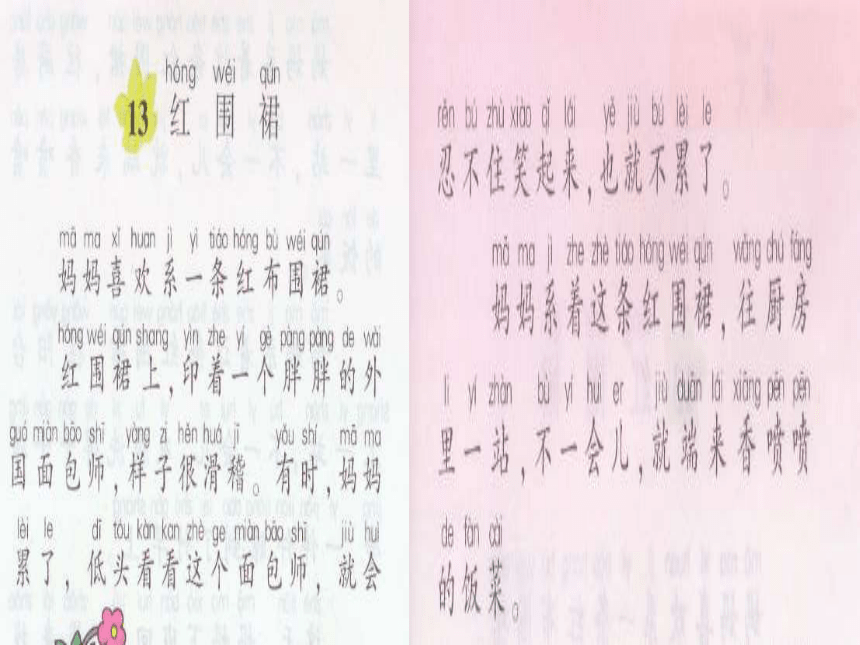 hóng wéi qún
13 红围裙
mā ma xǐ huan jì yì tiáo hóng bù wéi qún
妈妈喜欢系一条红布围裙。
hóng wéi qún shang yìn zhe yí gè pàng pàng de wài
红围裙上,印着一个胖胖的外
guó miàn bāo shī yàng zi hěn huá jī yǒu shí mā ma
国面包师,样子很滑稽。有时,妈妈
lèi le dī tóu kàn kan zhè ge miàn bāo shī jiù huì
累了,低头看看这个面包师,就会
rěn bú zhù xiào qǐ lái yě jiù bú lèi le
忍不住笑起来,也就不累了。
mā ma jì zhe zhè tiáo hóng wéi qún wǎng chú fáng
妈妈系着这条红围裙,往厨房
li yí zhàn bù yí huì er jiù duān lái xiāng pēn pēn
里一站,不一会儿,就端来香喷喷
de fàn cài
的饭菜。